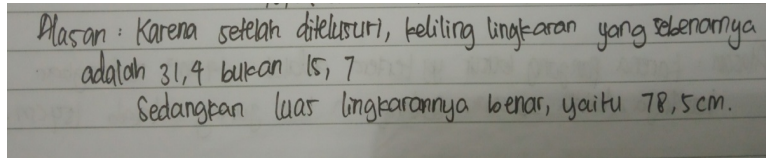 Alasan : Karena setelah ditelusuri, keliling lingkaran yang sebenarnya
adalah 31,4 bukan 15,7
Sedangkan luas lingkarannya benar, yaitu 78,5 cm.